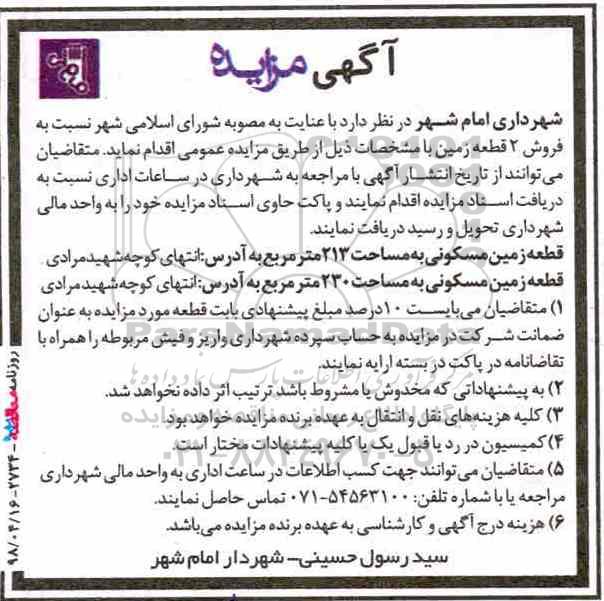 آگهی مزایده
شهرداری امام شهر در نظر دارد با عنایت به مصوبه شورای اسلامی شهر نسبت به
فروش ۲ قطعه زمین با مشخصات ذیل از طریق مزایده عمومی اقدام نماید. متقاضیان
می‌توانند از تاریخ انتشار آگهی با مراجعه به شهرداری در ساعات اداری نسبت به
دریافت اسناد مزایده اقدام نمایند و پاکت حاوی اسناد مزایده خود را به واحد مالی
شهرداری تحویل و رسید دریافت نمایند.
قطعه زمین مسکونی به مساحت ۲۱۳ متر مربع به آدرس: انتهای کوچه شهید مرادی
قطعه زمین مسکونی به مساحت ۲۳۰ متر مربع به آدرس: انتهای کوچه شهید مرادی
۱) متقاضیان می‌بایست ۱۰ درصد مبلغ پیشنهادی بابت قطعه مورد مزایده به عنوان
ضمانت شرکت در مزایده به حساب سپرده شهرداری واریز و فیش مربوطه را همراه با
تقاضانامه در پاکت در بسته ارایه نمایند.
۲) به پیشنهاداتی که مخدوش یا مشروط باشد ترتیب اثر داده نخواهد شد.
۳) کلیه هزینه‌های نقل و انتقال به عهده برنده مزایده خواهد بود.
۴) کمیسیون در رد یا قبول یک یا کلیه پیشنهادات مختار است.
۵) متقاضیان می‌توانند جهت کسب اطلاعات در ساعت اداری به واحد مالی شهرداری
مراجعه یا با شماره تلفن: ۵۴۵۶۳۱۰۰-۰۷۱ تماس حاصل نمایند.
۶) هزینه درج آگهی و کارشناسی به عهده برنده مزایده می‌باشد.
سید رسول حسینی- شهردار امام شهر
ParsNamadData
۰۲۱-۸۸۳۴۹۶۷۰-۵
روزنامه - ۲۷۳۴ - ۹۸/۰۴/۱۶